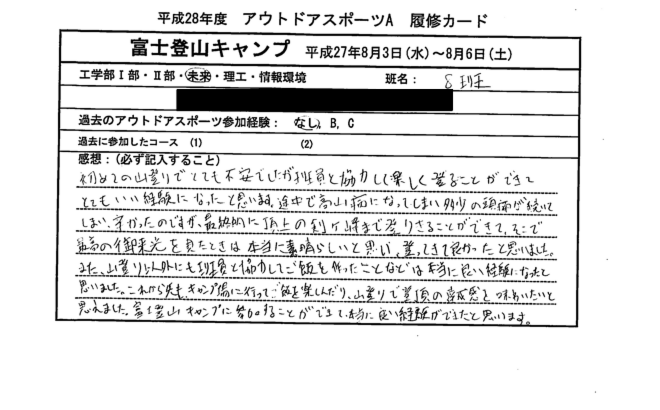 平成28年度 アウトドアスポーツA 履修カード
富士登山キャンプ 平成27年8月3日(水)～8月6日(土)
工学部Ⅰ部・Ⅱ部・未来・理工・情報環境 班名: 8班
過去のアウトドアスポーツ参加経験: なし, B, C
過去に参加したコース (1) (2)
感想: (必ず記入すること)
初めての山登りでとても不安でしたが班員と協力し楽しく登ることができて
とてもいい経験になったと思います。途中で高山病になってしまい多少の頭痛が続いて
しまい、辛かったのですが、最終的に頂上の剣ヶ峰まで登りきることができて、そこで
最高の御来光を見たときは本当に素晴らしいと思い、登ってきて良かったと思いました。
また、山登り以外にも班員と協力してご飯を作ったことなどは本当に良い経験になったと
思いました。これから先も、キャンプ場に行ってご飯を楽しんだり、山登りで登頂の達成感を味わいたいと
思えました。富士登山キャンプに参加することができて、本当に良い経験ができたと思います。